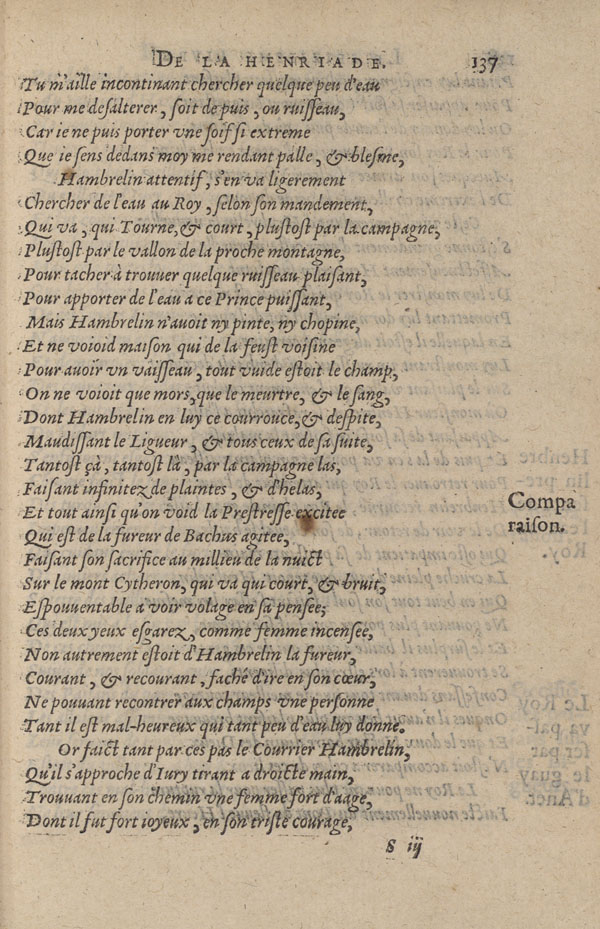 DE LA HENRIADE. 137
Tu m'aille incontinant chercher quelque peu d'eau
Pour me desalterer, soit de puis, ou ruisseau,
Car ie ne puis porter vne soif si extreme
Que ie sens dedans moy me rendant palle, & blesme,
Hambrelin attentif, s'en va ligerement
Chercher de l'eau au Roy, selon son mandement,
Qui va, qui Tourne, & court, plustost par la campagne,
Plustost par le vallon de la proche montagne,
Pour tacher à trouuer quelque ruisseau plaisant,
Pour apporter de l'eau a ce Prince puissant,
Mais Hambrelin n'auoit ny pinte, ny chopine,
Et ne voioid maison qui de la feust voisine
Pour auoir vn vaisseau, tout vuide estoit le champ,
On ne voioit que mors, que le meurtre, & le sang,
Dont Hambrelin en luy ce courrouce, & despite,
Maudissant le Ligueur, & tous ceux de sa suite,
Tantost çà, tantost là, par la campagne las,
Faisant infinitez de plaintes, & d'helas,
Et tout ainsi qu'on void la Prestresse excitee
Compa
raison.
Qui est de la fureur de Bachus agitee,
Faisant son sacrifice au millieu de la nuict
Sur le mont Cytheron, qui va qui court, & bruit,
Espouuentable a voir volage en sa pensee;
Ces deux yeux esgarez, comme femme incensee,
Non autrement estoit d'Hambrelin la fureur,
Courant, & recourant, faché d'ire en son cœur,
Ne pouuant recontrer aux champs vne personne
Tant il est mal-heureux qui tant peu d'eau luy donne.
Or faict tant par ces pas le Courrier Hambrelin,
Qu'il s'approche d'Iury tirant a droicte main,
Trouuant en son chemin vne femme fort d'aage,
Dont il fut fort ioyeux, en son triste courage,
S iij